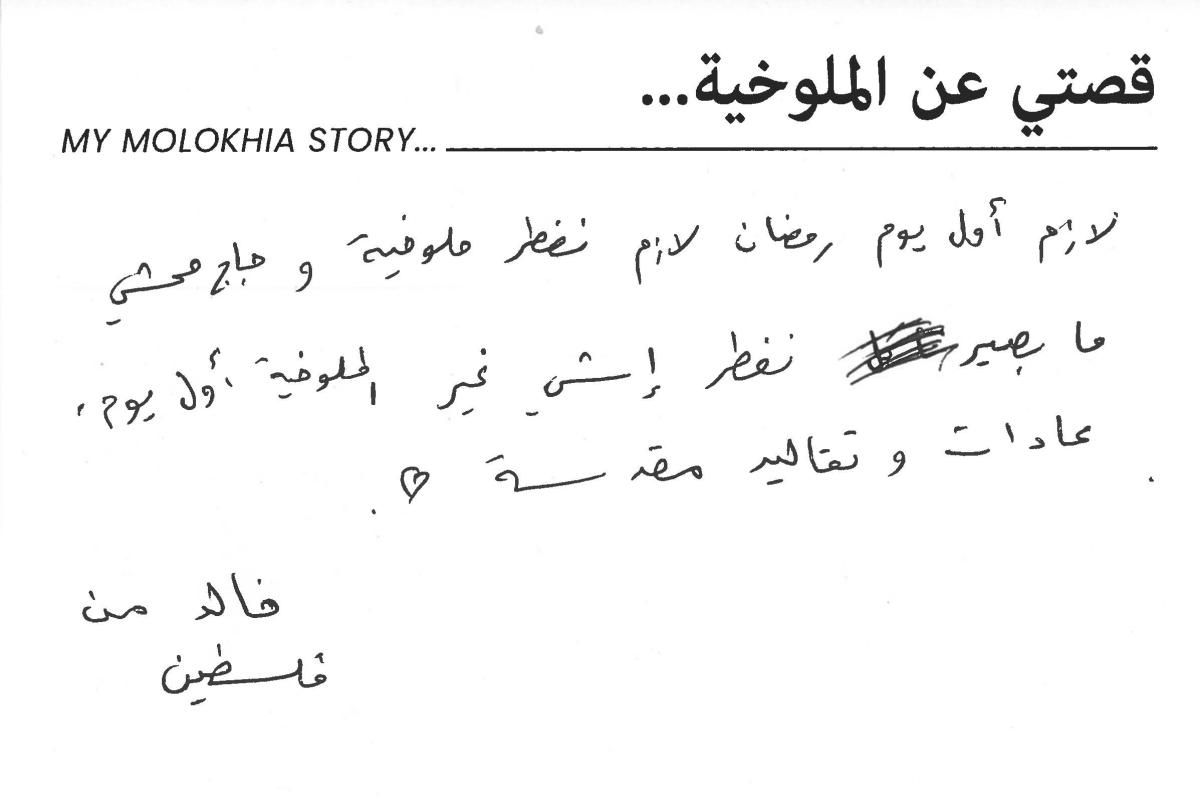 قصتي عن الملوخية...
MY MOLOKHIA STORY...
لازم أول يوم رمضان لازم نفطر ملوخية و جاج محشي
ما بصير نفطر إشي غير الملوخية أول يوم،
عادات و تقاليد مقدسة ♡.
خالد من
فلسطين